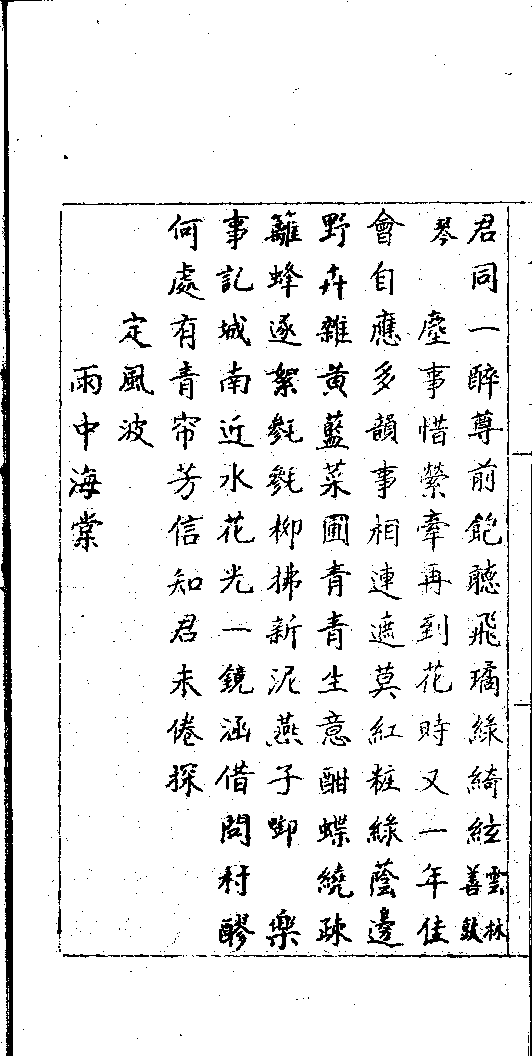 君同一醉尊前飽聽飛璚綠綺絃雲林善鼓
琴　塵事惜縈牽再到花時又一年佳
會自應多韻事相連遮莫紅粧綠蔭邊
野卉雜黃藍菜圃青青生意酣蝶繞疎
籬蜂逐絮毿毿柳拂新泥燕子啣　樂
事記城南近水花光一鏡涵借問村醪
何處有青帘芳信知君未倦探
定風波
雨中海棠